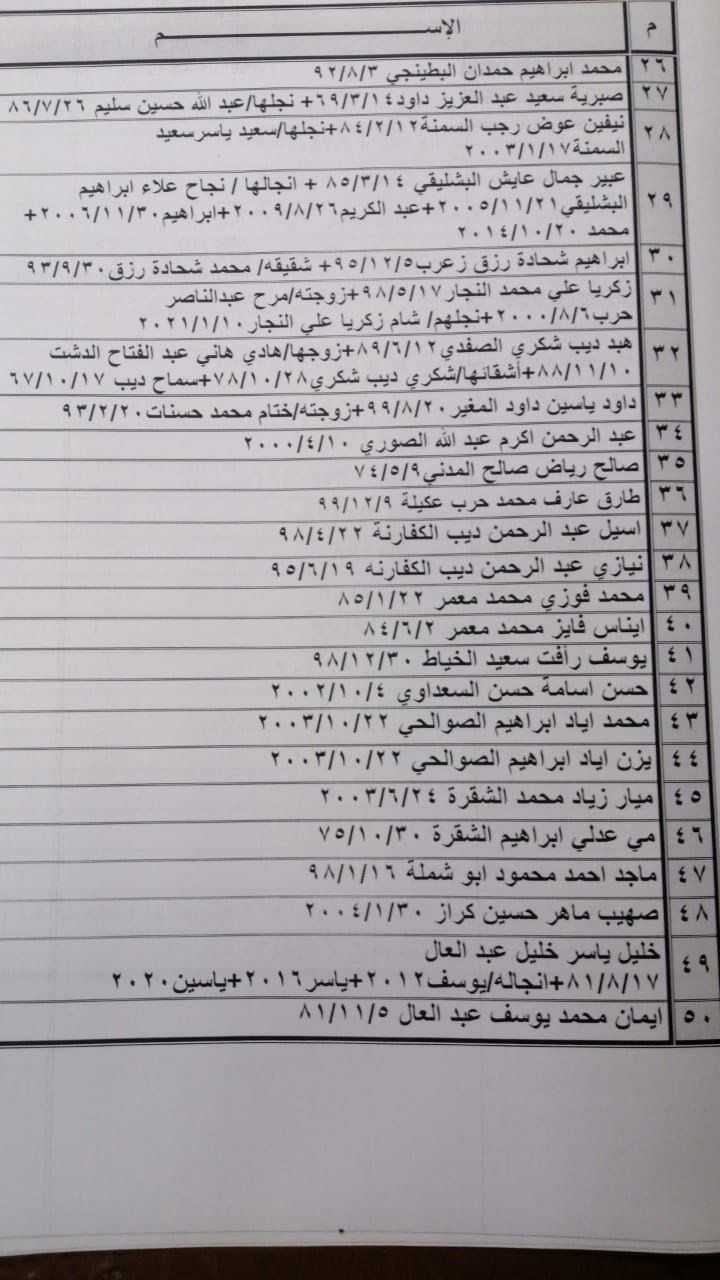 م الإســـــــــــــــــــــــــــــم
٢٦ محمد ابراهيم حمدان البطينجي ٩٢/٨/٣
٢٧ صبرية سعيد عبد العزيز داود٦٩/٣/١٤+ نجلها/عبد الله حسين سليم ٨٦/٧/٢٦
٢٨ نيفين عوض رجب السمنة٨٤/٢/١٢+نجلها/سعيد ياسرسعيد
السمنة٢٠٠٣/١/١٧
٢٩ عبير جمال عايش البشليقي ٨٥/٣/١٤ + انجالها / نجاح علاء ابراهيم
البشليقي٢٠٠٥/١١/٢١+عبد الكريم٢٠٠٩/٨/٢٦+ابراهيم٢٠٠٦/١١/٣٠+
محمد ٢٠١٤/١٠/٢٠
٣٠ ابراهيم شحادة رزق زعرب٩٥/١٢/٥+ شقيقه/ محمد شحادة رزق٩٣/٩/٣٠
٣١ زكريا علي محمد النجار٩٨/٥/١٧+زوجته/مرح عبدالناصر
حرب٢٠٠٠/٨/٦+نجلهم/ شام زكريا علي النجار٢٠٢١/١/١٠
٣٢ هبد ديب شكري الصفدي٨٩/٦/١٢+زوجها/هادي هاني عبد الفتاح الدشت
٨٨/١١/١٠+أشقائها/شكري ديب شكري٧٨/١٠/٢٨+سماح ديب ٦٧/١٠/١٧
٣٣ داود ياسين داود المغير٩٩/٨/٢٠+زوجته/ختام محمد حسنات٩٣/٢/٢٠
٣٤ عبد الرحمن اكرم عبد الله الصوري ٢٠٠٠/٤/١٠
٣٥ صالح رياض صالح المدني٧٤/٥/٩
٣٦ طارق عارف محمد حرب عكيلة ٩٩/١٢/٩
٣٧ اسيل عبد الرحمن ديب الكفارنة ٩٨/٤/٢٢
٣٨ نيازي عبد الرحمن ديب الكفارنه ٩٥/٦/١٩
٣٩ محمد فوزي محمد معمر ٨٥/١/٢٢
٤٠ ايناس فايز محمد معمر ٨٤/٦/٢
٤١ يوسف رأفت سعيد الخياط ٩٨/١٢/٣٠
٤٢ حسن اسامة حسن السعداوي ٢٠٠٢/١٠/٤
٤٣ محمد اياد ابراهيم الصوالحي ٢٠٠٣/١٠/٢٢
٤٤ يزن اياد ابراهيم الصوالحي ٢٠٠٣/١٠/٢٢
٤٥ ميار زياد محمد الشقرة ٢٠٠٣/٦/٢٤
٤٦ مي عدلي ابراهيم الشقرة ٧٥/١٠/٣٠
٤٧ ماجد احمد محمود ابو شملة ٩٨/١/١٦
٤٨ صهيب ماهر حسين كراز ٢٠٠٤/١/٣٠
٤٩ خليل ياسر خليل عبد العال
٨١/٨/١٧+انجاله/يوسف٢٠١٢+ياسر٢٠١٦+ياسين٢٠٢٠
٥٠ ايمان محمد يوسف عبد العال ٨١/١١/٥